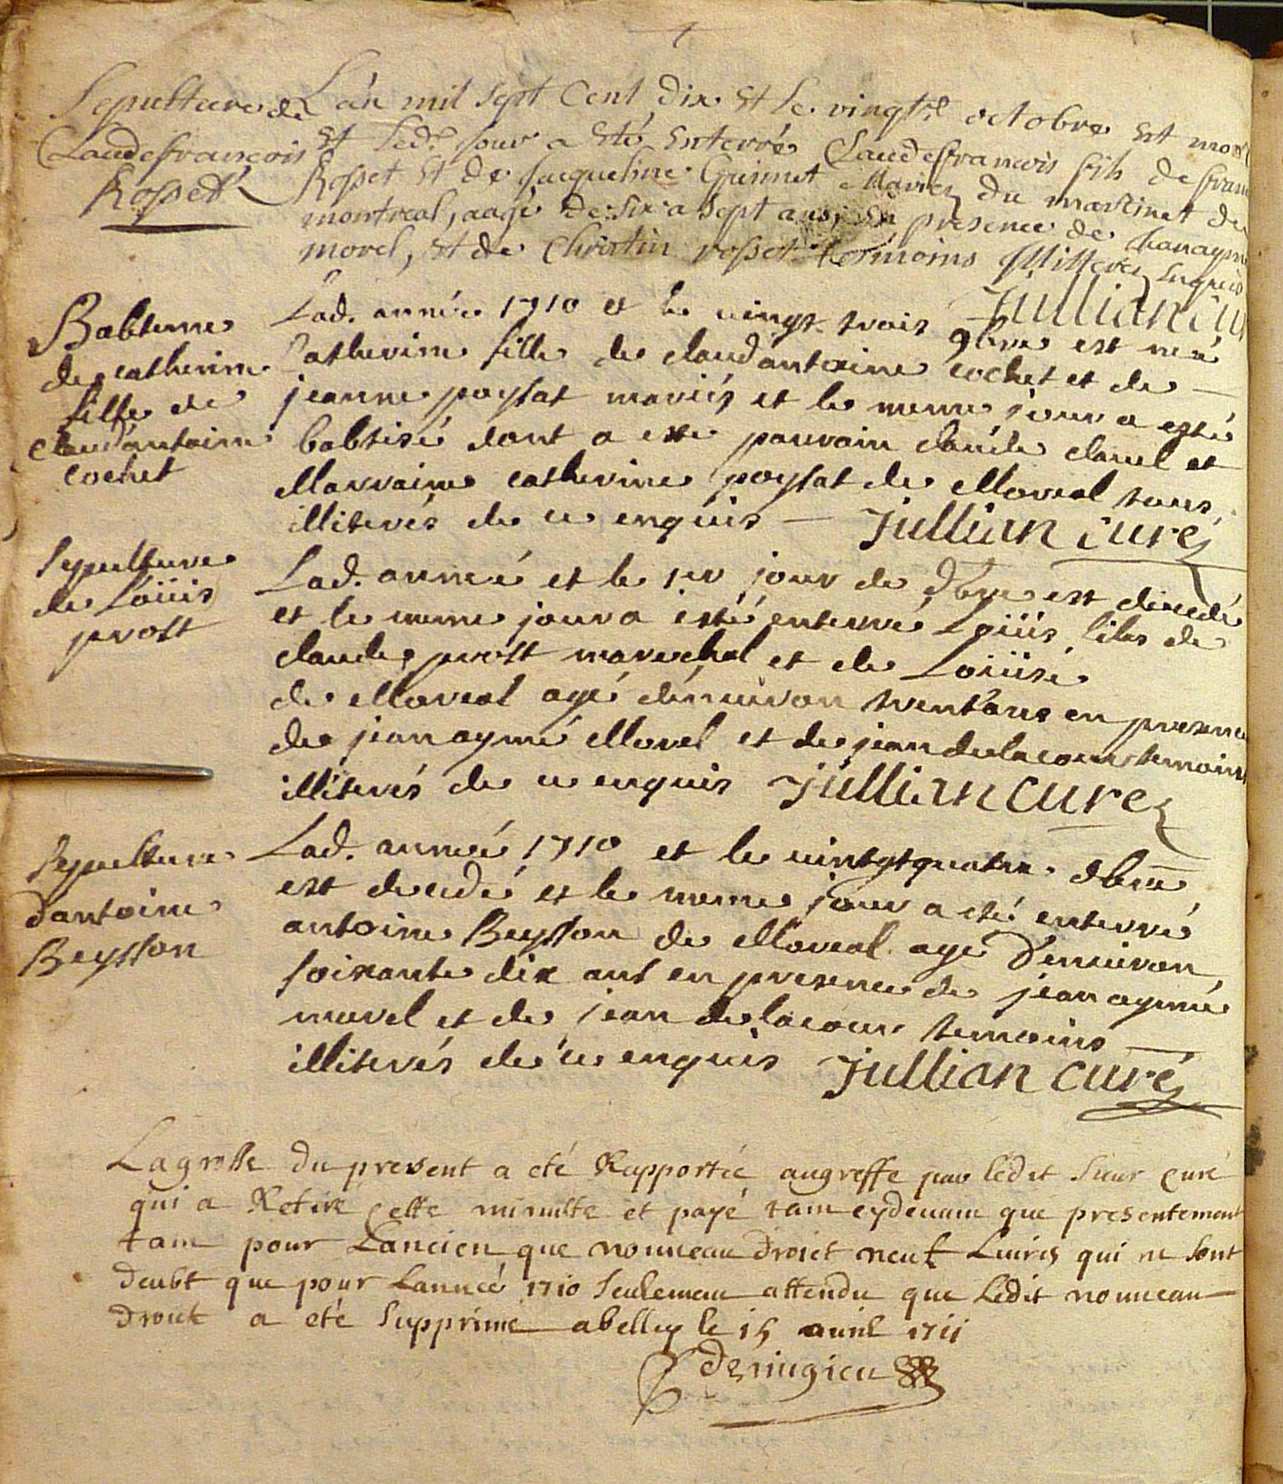 Sepulture de
Claudefrancois
Rosset
L'an mil sept Cent dix et le vingt.e octobre est mort
et led. jour a eté Enterré Claudefrancois fils de fran
Rosset et de Jacqueline Guinet Mariez du martinet de
montreal, aagé de six a sept ans, en presence de Jeanayme
morel, et de Christin rosset temoins illiterez enquis
Jullian cu
Babteme
de catherine
fille de
claud'antoine
cochet
Lad. année 1710 et le vingt trois 9bre est née
Catherine fille de claud'antoine cochet et de
jeanne poysat mariés et le meme jour a esté
babtisé dont a esté parrain claude clavel et
Marraine catherine poysat de Moreal tous
illiterés de ce enquis Jullian curé
Sepulture
de Loüis
prost
Lad. année et le 1er jour de Xbre est decedé
et le meme jour a esté enterré Loüis fils de
claude prost marechal et de Loüise
de Moreal agé d'environ trent'ans en presence
de jean aymé Morel et de jean delacour temoins
illiterés de ce enquis Jullian curé
Sepulture
d'antoine
Beysson
Lad. année 1710 et le vintgt quatre Xbre
est decedé et le meme jour a eté enterré
antoine Beysson de Moreal agé d'environ
soixante dix ans en presence de jean aymé
morel et de jean de lacour temoins
illiterés de ce enquis Jullian curé
La grosse du present a eté Rapportée augreffe par ledit sieur curé
qui a Retiré cette minutte et payé tam cydevam que presentement
tam pour Lancien que nouveau droict neuf Livres qui ne sont
deubt que pour Lanneé 1710 seulemam attendu que Ledit nouveau
droict a eté supprimé abelley le 15 avril 1711